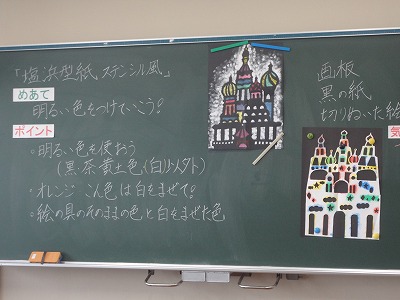 「塩浜型紙ステンシル風」
めあて
明るい色をつけていこう!
ポイント
○明るい色を使おう
○オレンジ こん色は白をまぜて!
○絵の具のそのままの色と白をまぜた色
画板
黒の紙
切りぬいた絵
気